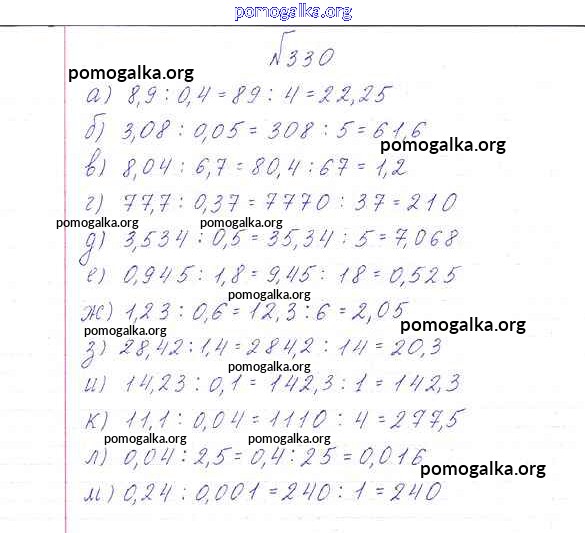 pomogalka.org
№330
pomogalka.org
а) 8,9 : 0,4 = 89 : 4 = 22,25
б) 3,08 : 0,05 = 308 : 5 = 61,6
pomogalka.org
в) 8,04 : 6,7 = 80,4 : 67 = 1,2
г) 77,7 : 0,37 = 7770 : 37 = 210
pomogalka.org pomogalka.org
д) 3,534 : 0,5 = 35,34 : 5 = 7,068
е) 0,945 : 1,8 = 9,45 : 18 = 0,525
pomogalka.org
ж) 1,23 : 0,6 = 12,3 : 6 = 2,05
pomogalka.org pomogalka.org
з) 28,42 : 1,4 = 284,2 : 14 = 20,3
pomogalka.org
и) 14,23 : 0,1 = 142,3 : 1 = 142,3
к) 11,1 : 0,04 = 1110 : 4 = 277,5
pomogalka.org pomogalka.org
л) 0,04 : 2,5 = 0,4 : 25 = 0,016
pomogalka.org
м) 0,24 : 0,001 = 240 : 1 = 240